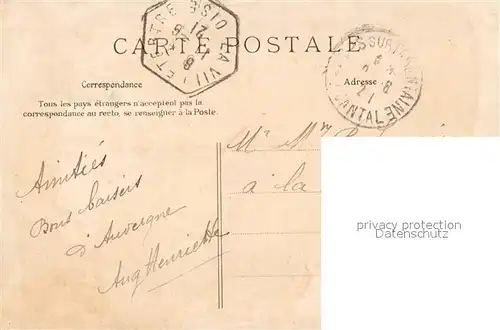 CARTE POSTALE
LA VILLETERTRE OISE
21
8
SUR TARENTAINE
CANTAL
8
21
Correspondance
Adresse
Tous les pays étrangers n'acceptent pas la
correspondance au recto, se renseigner à la Poste.
Amitiés
Bons baisers
d'Auvergne
Aug Henriette
Mr Mme
à la
privacy protection
Datenschutz